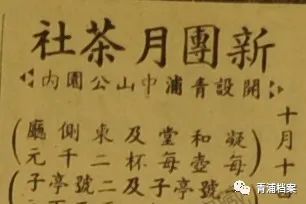 新團月茶社
開設青浦中山公園內
十月十
凝和堂及東側廳
每壺每杯二千元
號亭子及二號亭子
青浦档案